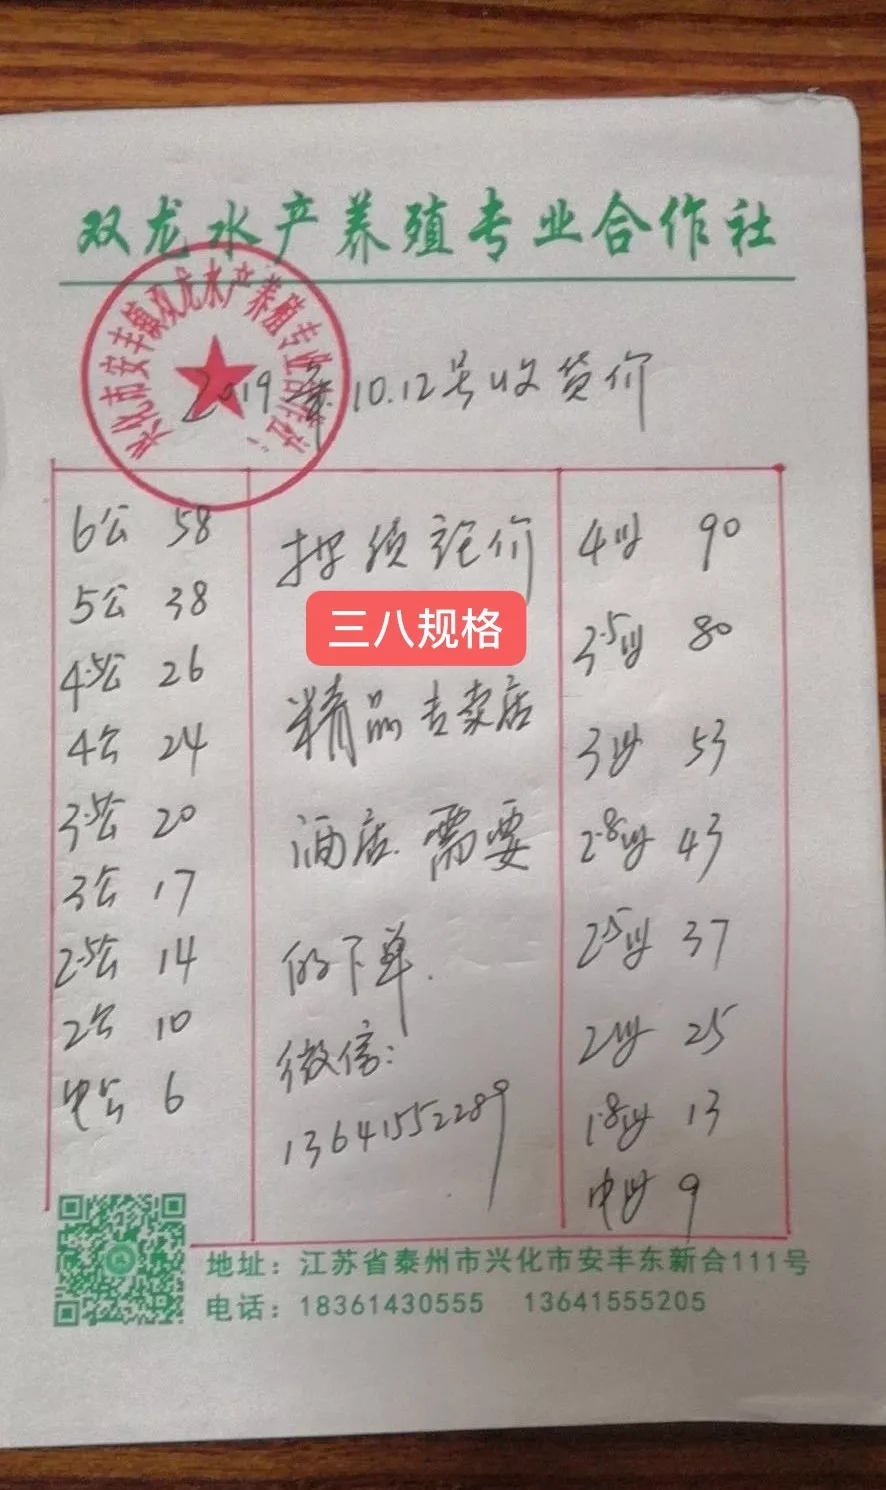 双龙水产养殖专业合作社
兴化市安丰镇双龙水产养殖专业合作社
2019年10.12号收货价
6公 58
5公 38
4.5公 26
4公 24
3.5公 20
3公 17
2.5公 14
2公 10
中公 6
按质论价
三八规格
精品专卖店
酒店需要
的下单.
微信:
13641552289
4母 90
3.5母 80
3母 53
2.8母 43
2.5母 37
2母 25
1.8母 13
中母 9
地址：江苏省泰州市兴化市安丰东新合111号
电话：18361430555 13641555205